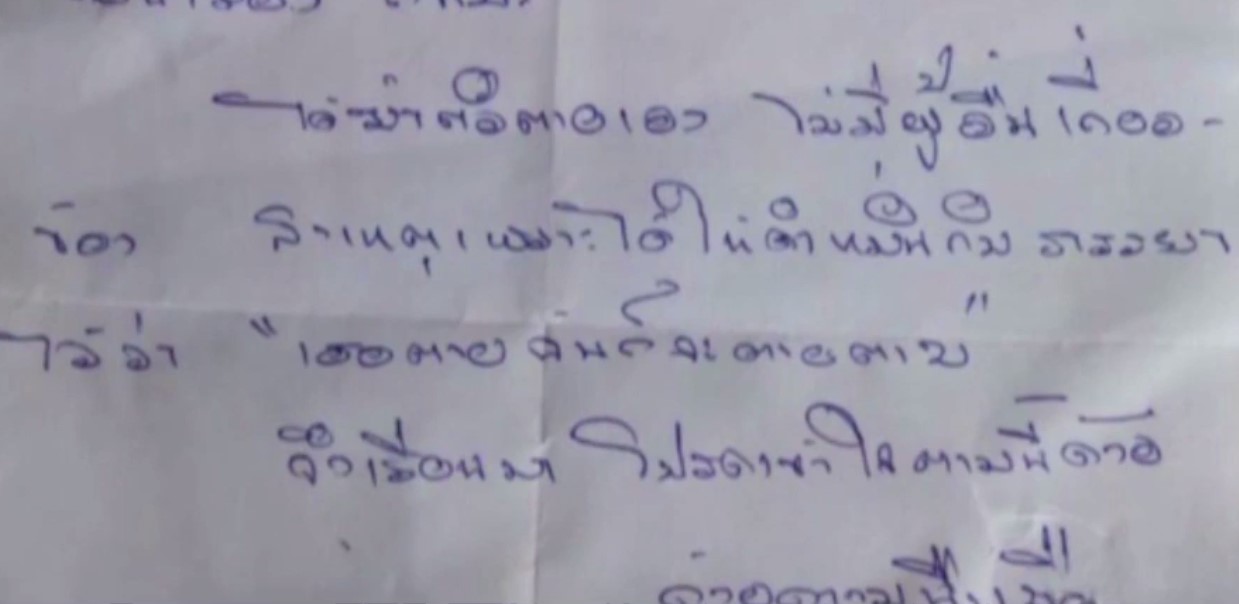 ได้ฆ่าตัวตายเอง ไม่มีผู้อื่นเกี่ยว-
ข้อง สาเหตุเพราะได้ให้คำหมั้น กับ ภรรยา
ไว้ว่า "เธอตาย ฉันก็จะตายตาม"
จึงเรียนมา โปรดเข้าใจตามนี้ด้วย